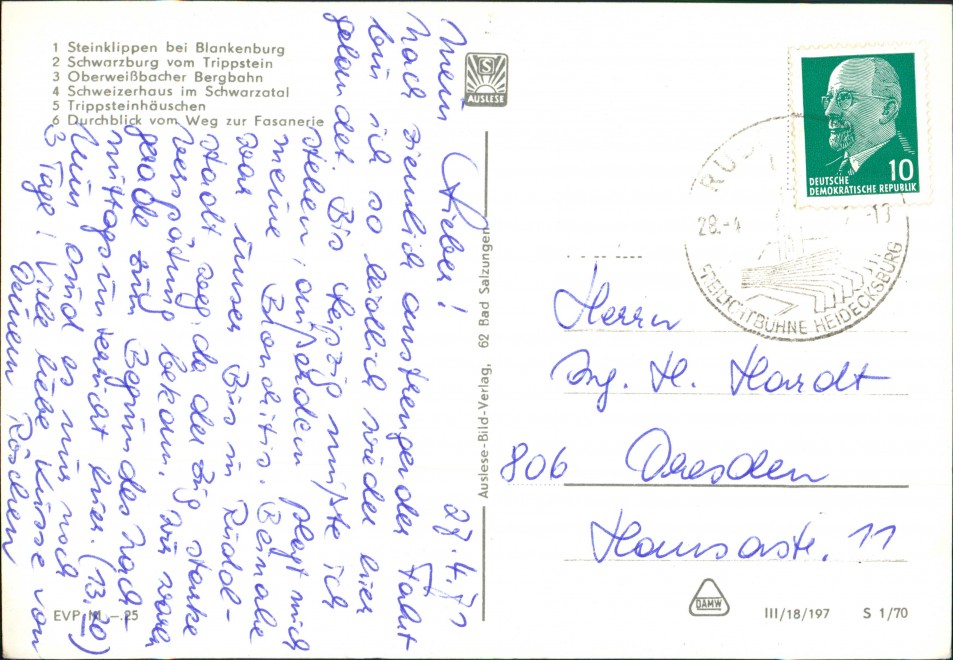 1 Steinklippen bei Blankenburg
2 Schwarzburg vom Trippstein
3 Oberweißbacher Bergbahn
4 Schweizerhaus im Schwarzatal
5 Trippsteinhäuschen
6 Durchblick vom Weg zur Fasanerie
S
AUSLESE
27.4.71
Mein Lieber!
Nach ziemlich anstrengender Fahrt
bin ich so leidlich wieder hier
gelandet. Bis Leipzig mußte ich
stehen, außerdem plagt mich
meine Bronchitis. Beinahe
war unser Bus in Rudol-
stadt weg, da der Zug starke
Verspätung bekam. Wir waren
gerade zum Beginn des Nach-
mittagsunterricht hier. (13.30)
Nun sind es nur noch
3 Tage! Viele liebe Küsse von
Deinem Röschen
EVP M -.25
Auslese-Bild-Verlag, 62 Bad Salzungen
DEUTSCHE
DEMOKRATISCHE REPUBLIK
10
RU
28.-4
-13
FREILICHTBÜHNE HEIDECKSBURG
Herrn
Ing. H. Hardt
806 Dresden
Hansastr. 11
DAMW
III/18/197 S 1/70